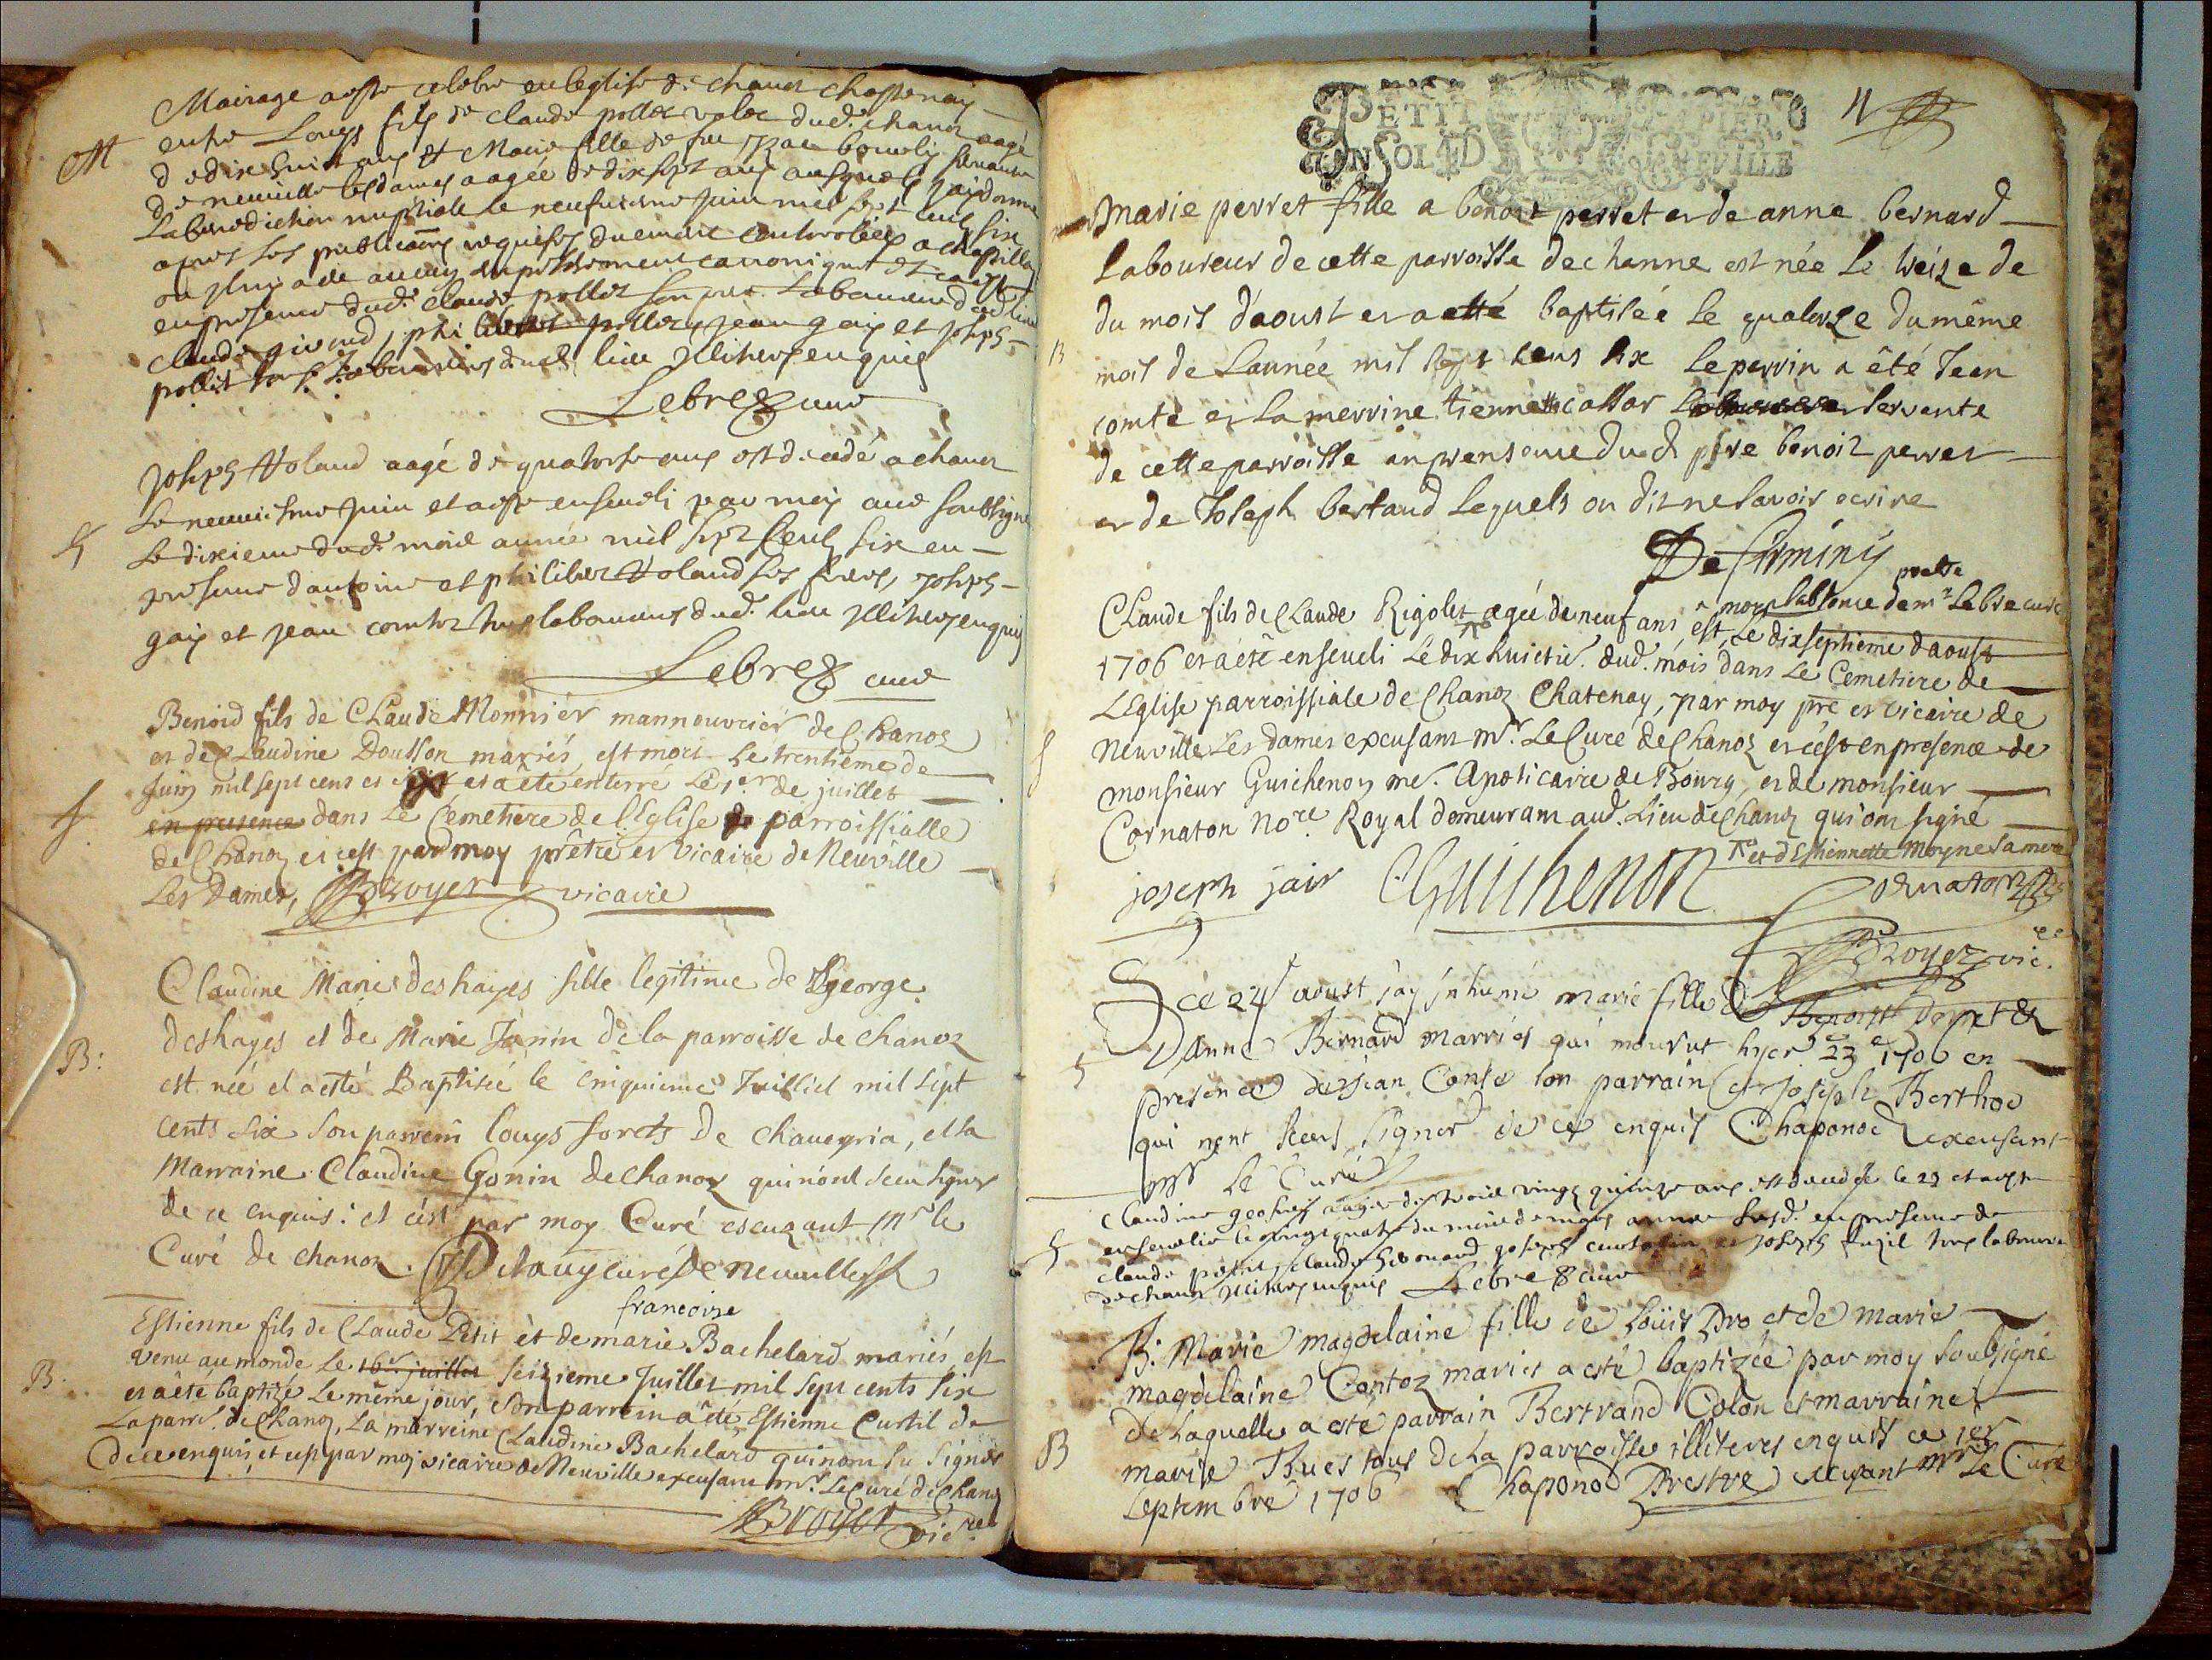 Mairage a este celebre en leglise de chanoz chastenay
M
entre Louys fils de claude pollet valet dud. chanoz aagé
de dix huict ans et Marie fille de feu servante
de neuville les dames aagée de dix sept ans ausquels jay donné
la benediction nuptiale le neufvieme juin mil sept cent six
apres les publicaons requises duement controllées a chastillon
ou il ny a de aucuns empeschement canonique et
en presence dud. claude pollet son pere laboureur dud lieu
claude giroud, philibert pollet, jean gaix et joseph
pollet tous laboureurs dud. lieu illiteres enquis
Lebre curé
Joseph Voland aagé de quatorse ans est decedé a chanoz
S
Le neuvieme juin et a este enseveli par moy curé soubsigné
Le dixieme dud. mois année mil sept cent six en
presence dantoine et philibert Voland ses freres, joseph
gaix et jean contoz tous laboureurs dud. lieu illiteres enquis
Lebre curé
Benoid fils de Claude Monnier mannouvrier de Chanoz
et de Claudine Dousson mariés, est mort le trentième de
Juin mil sept cens et six et a été enterré le 1er de juillet
S
en presence dans le Cémetiere de l'Eglise de parroissialle
de Chanoz et c'est par moy prêtre et vicaire de Neuville
Les Dames, Broyer vicaire
Claudine Marie deshayes fille legitime de George
deshayes et de Marie Janin de la parroisse de chanoz
B:
est née et a esté Baptisée le cinquieme Juilliet mil sept
cents six son parrein louys forets de chaveyria, et la
Marraine Claudine Gonin de chanoz qui n'ont sceu signer
de ce enquis: et c'est par moy Curé escuzant Mr le
Curé de chanoz. Delauy curé de neuville
francoise
Estienne fils de Claude Petit et de marie Bachelard mariés, est
venu au monde le 16e juillet seizieme Juillet mil sept cents six
B.
et a été baptizé le même jour, son parrein a été Estienne Curtil de
la parr. de Chanoz, la marreine Claudine Bachelard qui n'ont su signer
de ce enquis, et c'est par moy vicaire de Neuville excusant Mr. le Curé de Chanoz
Broyer vicre
PETIT PAPIER,
UN SOL 4 D
11
Marie perret fille a benoit perret et de anne bernard
Laboureur de cette parroisse de channe est née le treize de
du mois d'aoust et a etté baptisée le quatorze du même
B
mois de l'année mil sept cens six le perrin a été Jean
comte et la merrine tiennette servente
de cette parroisse en presence dud. père benoit perret
et de Joseph bertaud lequels on dit ne savoir ecrire
De Curminy pretre
Claude fils de Claude Rigolet agée de neuf ans est mort Le dixseptième d'aoust
labsence de mr Lebre curé
1706 et a été enseveli Le dix huictie. dud. mois dans Le Cemetiere de
L'Eglise parroissiale de Chanoz Chatenay, par moy pre et vicaire de
Neuville Les dames excusant Mr. Le Curé de Chanoz et c'est en presence de
S
monsieur Guichenon me. Apoticaire de Bourg, et de monsieur
Cornaton Nore Royal demeurant aud. Lieu de Chanoz qui ont signé
et d'Estiennette Moyne sa mere
joseph jair Guichenon Cornaton
Broyer vic.
Ce 24 aoust j'ay inhumé marie fille de Benoist perret et
D'anne Bernard marriés qui mourut hyer 23e 1706 en
S
presence de Jean Conte son parrain et Joseph Berthod
qui n'ont sceus signer de ce enquis Chaponod excusant
Mr Le Curé
Claudine aagée de quinze ans est decedée le 23 et a este
S
ensevelie le vingt quatre du mois de mars année susd. en presence de
claude joseph et joseph tous laboureurs
de chanoz illiteres enquis Lebre curé
B: Marie Magdelaine fille de Loüis Pro et de marie
magdelaine Contoz mariés a esté baptizée par moy soubsigné
de laquelle a esté parrain Bertrand Colon et marraine
B
marie Rues tous de la parroisse illiteres enquis ce 1er
septembre 1706 Chaponod Prestre excusant Mr Le Curé